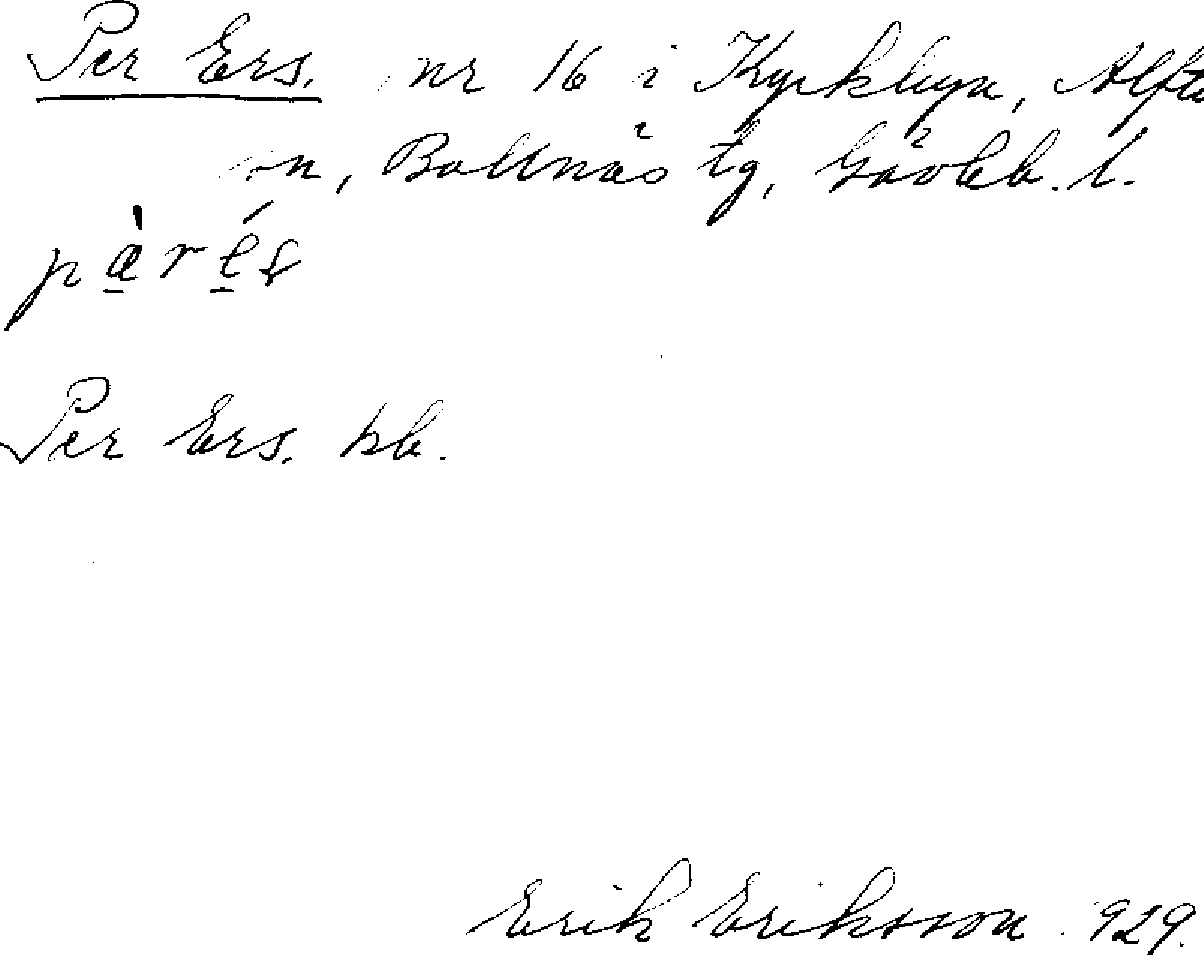 Per Ers. nr 16 i Kyrkbyn, Alfta
sn, Bollnäs tg, Gävleb. l.
Per Ers. kb.
Erik Eriksson 1929.